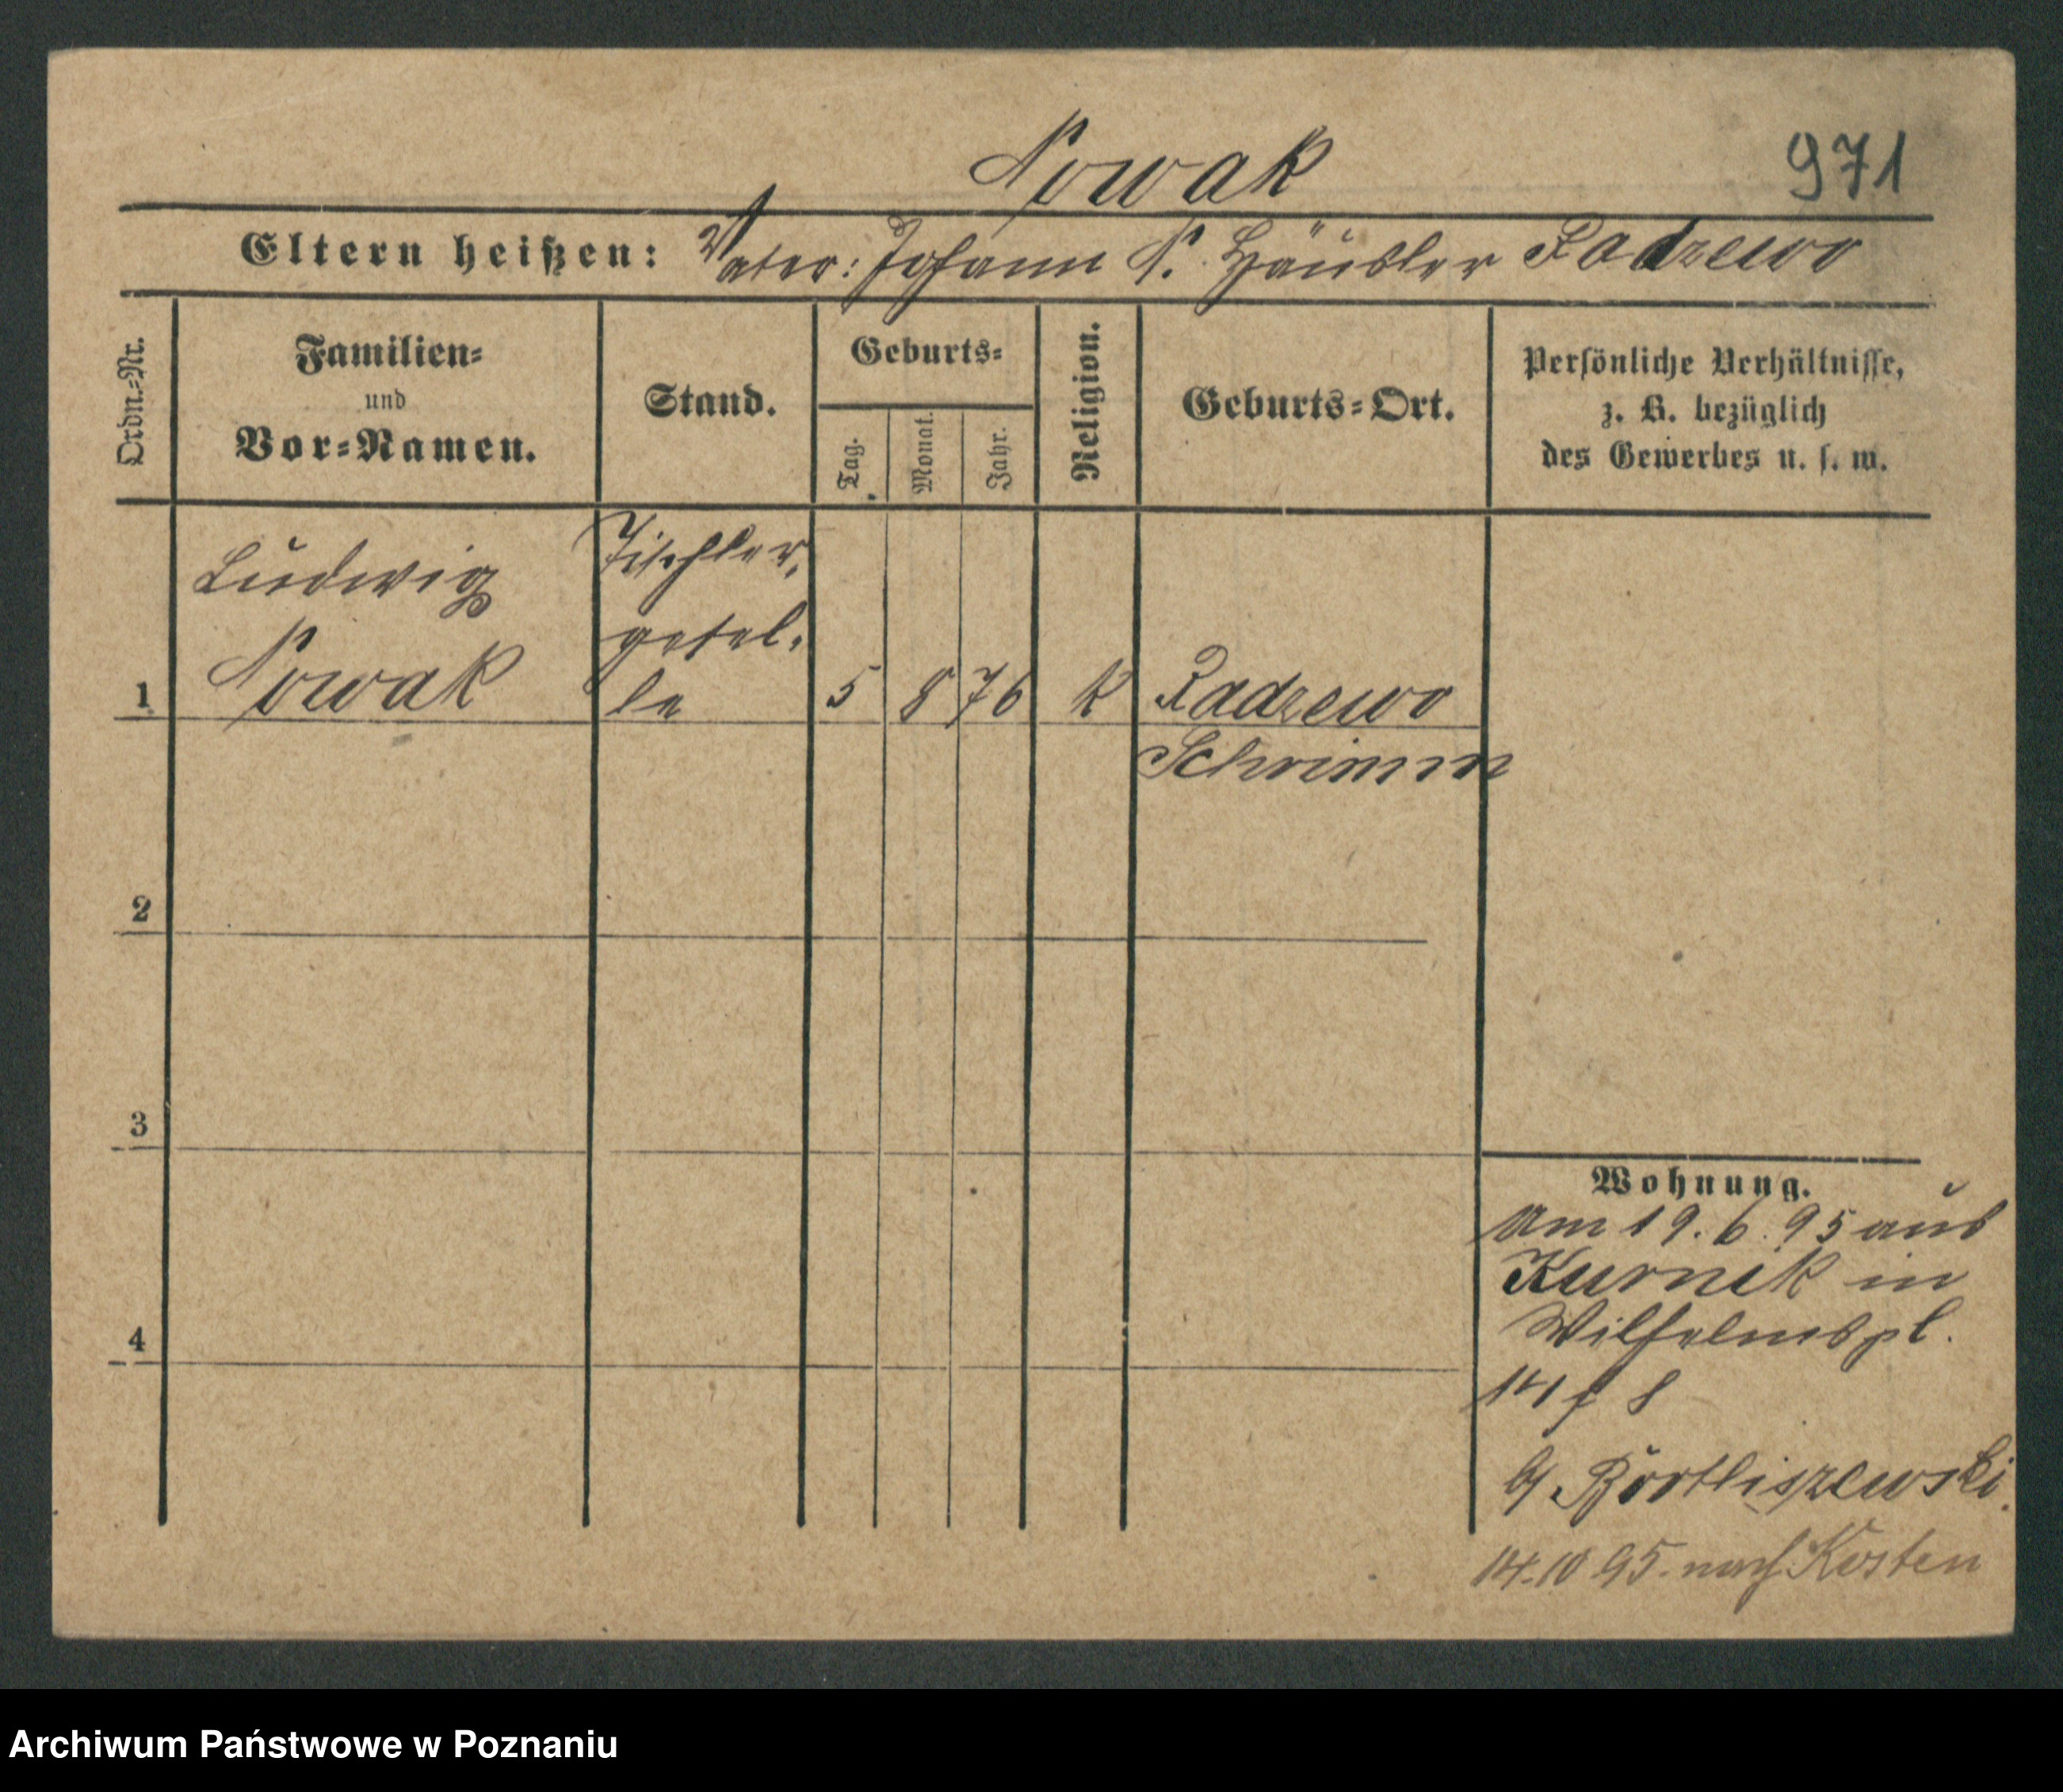 Nowak
971
Eltern heißen: Vater: Johann N. Häusler Radzewo
Ordn.=Nr.
Familien=
und
Vor=Namen.
Stand.
Geburts=
Tag.
Monat.
Jahr.
Religion.
Geburts=Ort.
Persönliche Verhältnisse,
z. B. bezüglich
des Gewerbes u. s. w.
Ludwig
Nowak
Tischler,
gesel-
le
1
5 8 76 K Radzewo
Schrimm
2
3
4
Wohnung.
Am 19. 6. 95 aus
Kurnik in
Wilhelmspl.
14 8
b/
14.10 95. nach Kosten
Archiwum Państwowe w Poznaniu